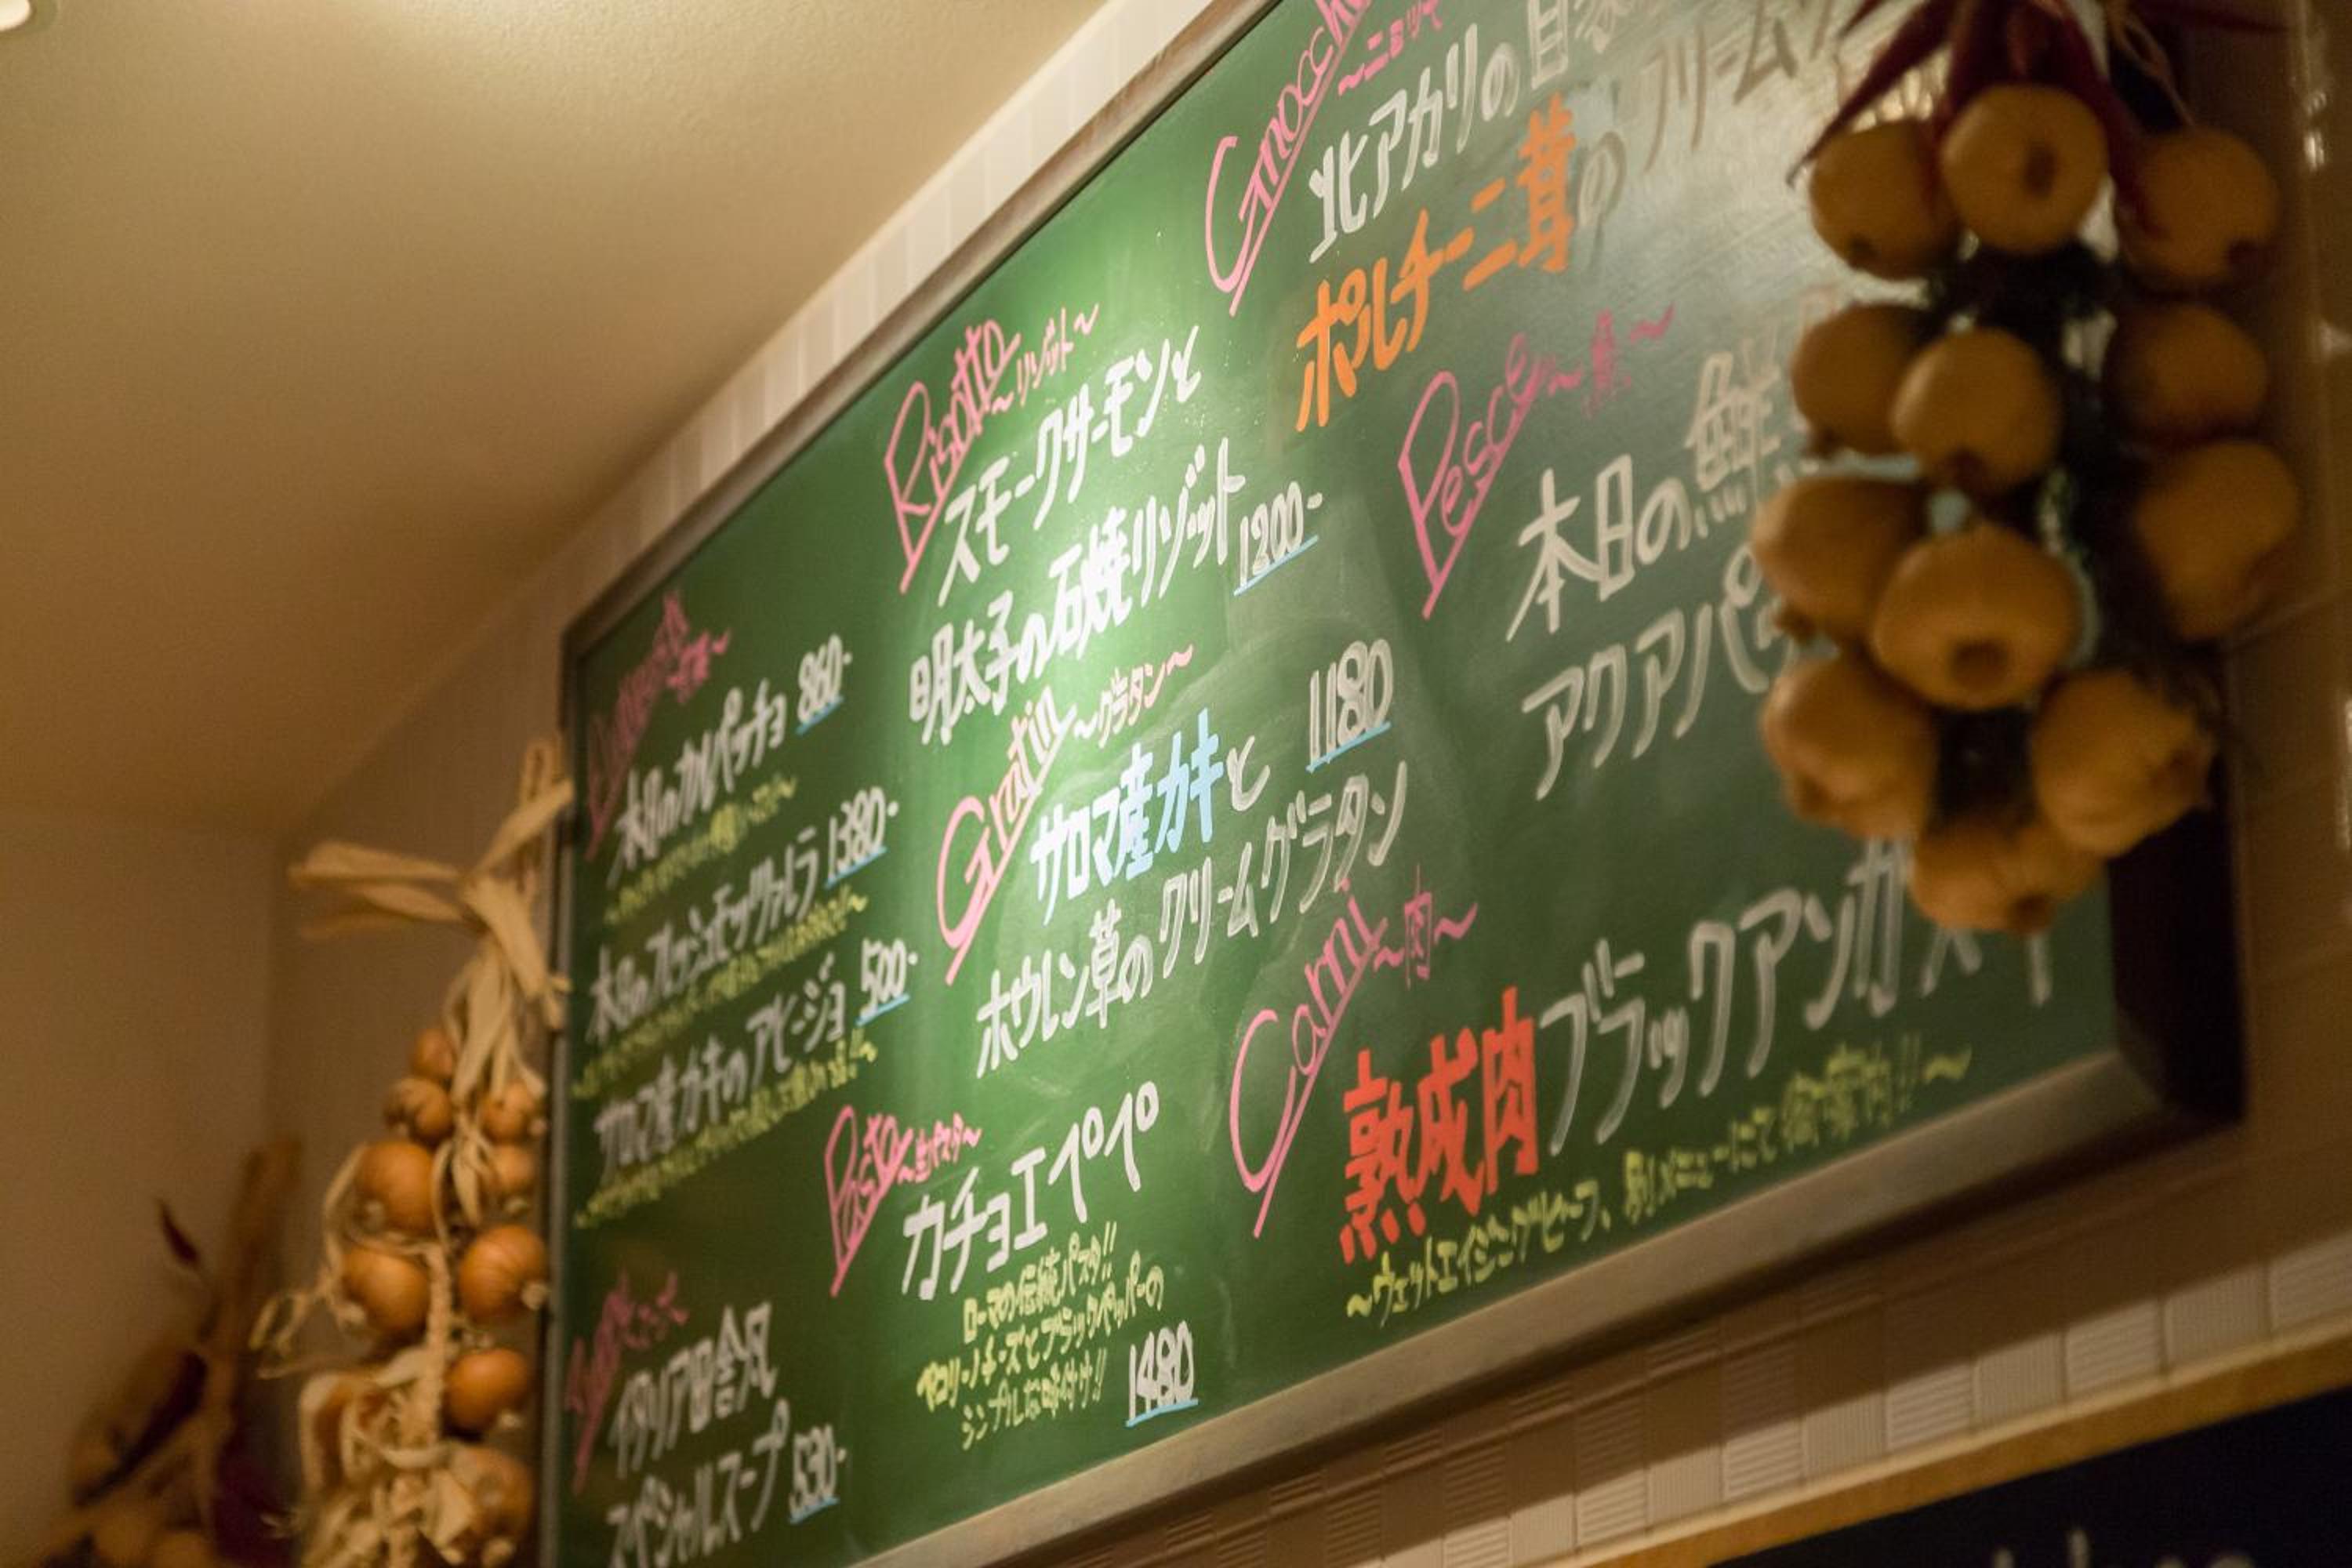 本日のカルパッチョ 860-
本日のフレッシュモッツァレラ 1380-
サロマ産カキのアヒージョ 500-
イタリア田舎風
スペシャルスープ 530-
Risotto ~リゾット~
スモークサーモンと
明太子の石焼リゾット 1200-
Gratin ~グラタン~
サロマ産カキと 1180
ホウレン草のクリームグラタン
Pasta ~生パスタ~
カチョエペペ
ローマの伝統パスタ!!
ペコリーノチーズとブラックペッパーの
シンプルな味付け!! 1480
Gnocchi ~ニョッキ
北アカリの自家
ポルチーニ茸のクリーム
Pesce ~魚~
本日の鮮
アクアパ
Carni ~肉~
熟成肉ブラックアンガス牛
~ウェットエイジングビーフ、別メニューにて御案内!!~